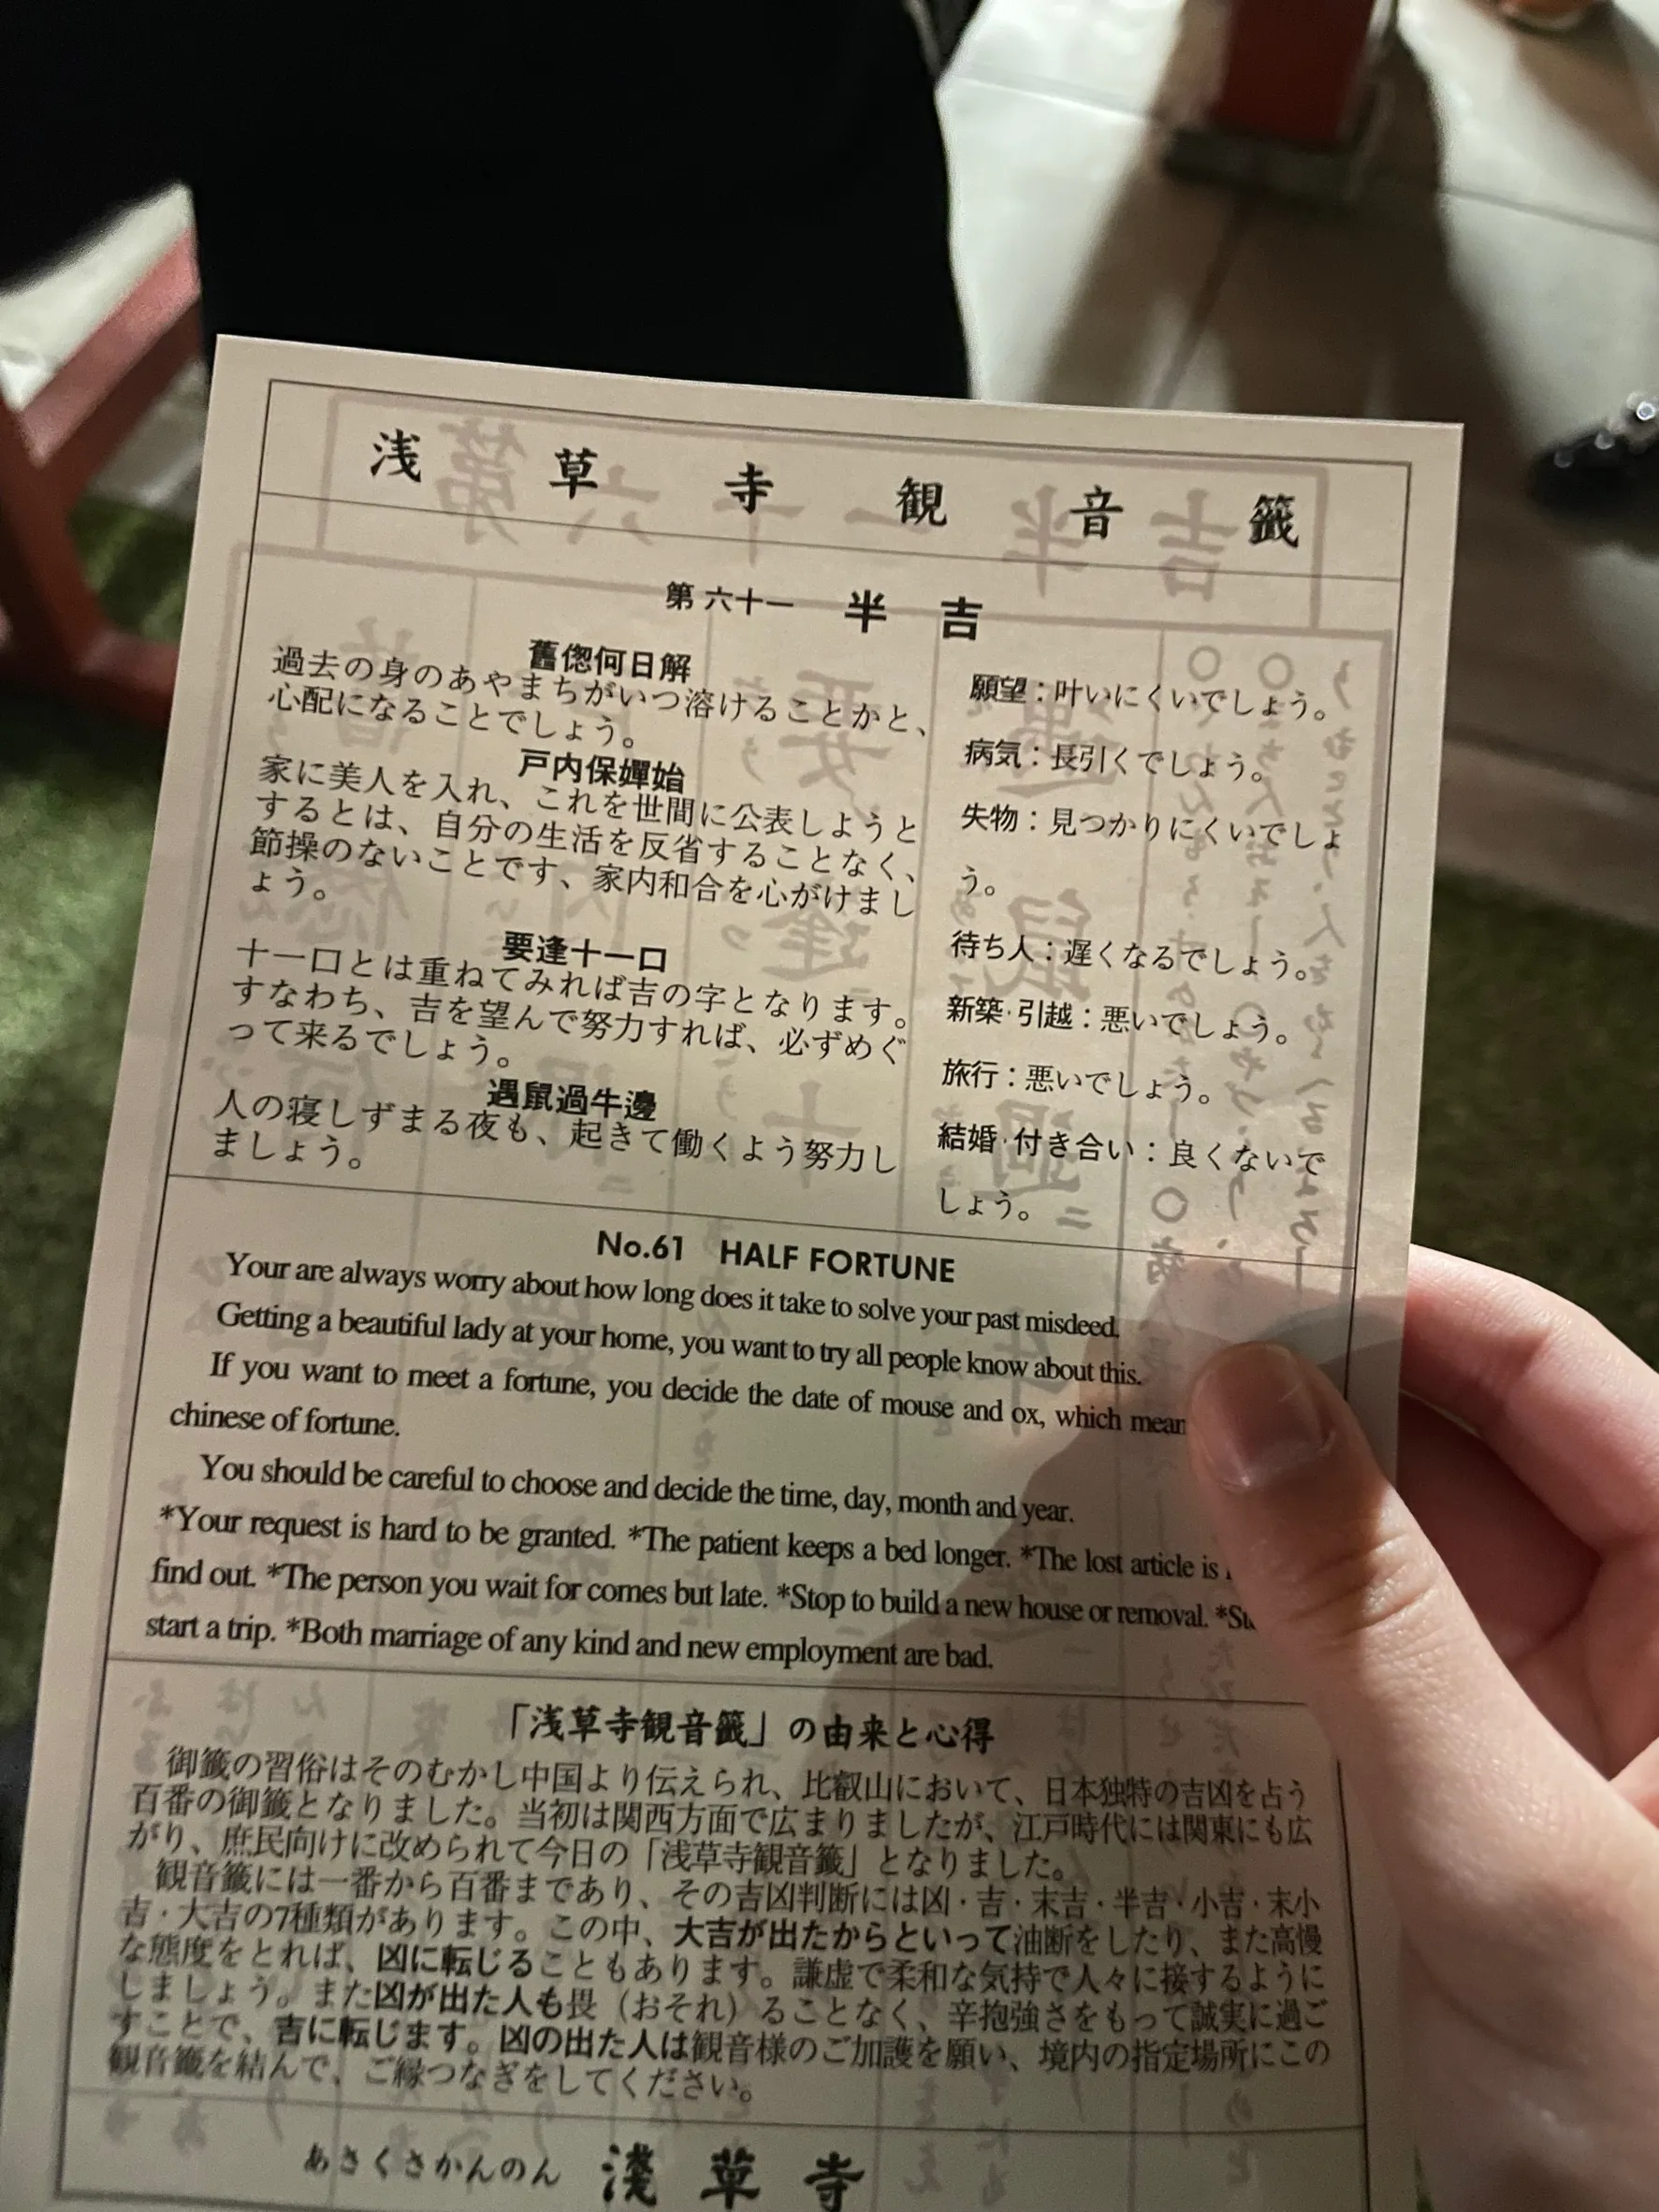 浅草寺観音籤
第六十一 半吉
舊愡何日解
過去の身のあやまちがいつ溶けることかと、
心配になることでしょう。
戸内保嬋始
家に美人を入れ、これを世間に公表しようと
するとは、自分の生活を反省することなく、
節操のないことです、家内和合を心がけまし
ょう。
要逢十一口
十一口とは重ねてみれば吉の字となります。
すなわち、吉を望んで努力すれば、必ずめぐ
って来るでしょう。
遇鼠過牛邊
人の寝しずまる夜も、起きて働くよう努力し
ましょう。
願望：叶いにくいでしょう。
病気：長引くでしょう。
失物：見つかりにくいでしょ
う。
待ち人：遅くなるでしょう。
新築·引越：悪いでしょう。
旅行：悪いでしょう。
結婚·付き合い：良くないで
しょう。
No.61 HALF FORTUNE
Your are always worry about how long does it take to solve your past misdeed.
Getting a beautiful lady at your home, you want to try all people know about this.
If you want to meet a fortune, you decide the date of mouse and ox, which
chinese of fortune.
You should be careful to choose and decide the time, day, month and year.
*Your request is hard to be granted. *The patient keeps a bed longer. *The lost article is
find out. *The person you wait for comes but late. *Stop to build a new house or removal.
start a trip. *Both marriage of any kind and new employment are bad.
「浅草寺観音籤」の由来と心得
御籤の習俗はそのむかし中国より伝えられ、比叡山において、日本独特の吉凶を占う
百番の御籤となりました。当初は関西方面で広まりましたが、江戸時代には関東にも広
がり、庶民向けに改められて今日の「浅草寺観音籤」となりました。
観音籤には一番から百番まであり、その吉凶判断には凶・吉・末吉・半吉・小吉・末小
吉・大吉の7種類があります。この中、大吉が出たからといって油断をしたり、また高慢
な態度をとれば、凶に転じることもあります。謙虚で柔和な気持で人々に接するように
しましょう。また凶が出た人も畏（おそれ）ることなく、辛抱強さをもって誠実に過ご
すことで、吉に転じます。凶の出た人は観音様のご加護を願い、境内の指定場所にこの
観音籤を結んで、ご縁つなぎをしてください。
あさくさかんのん 淺草寺